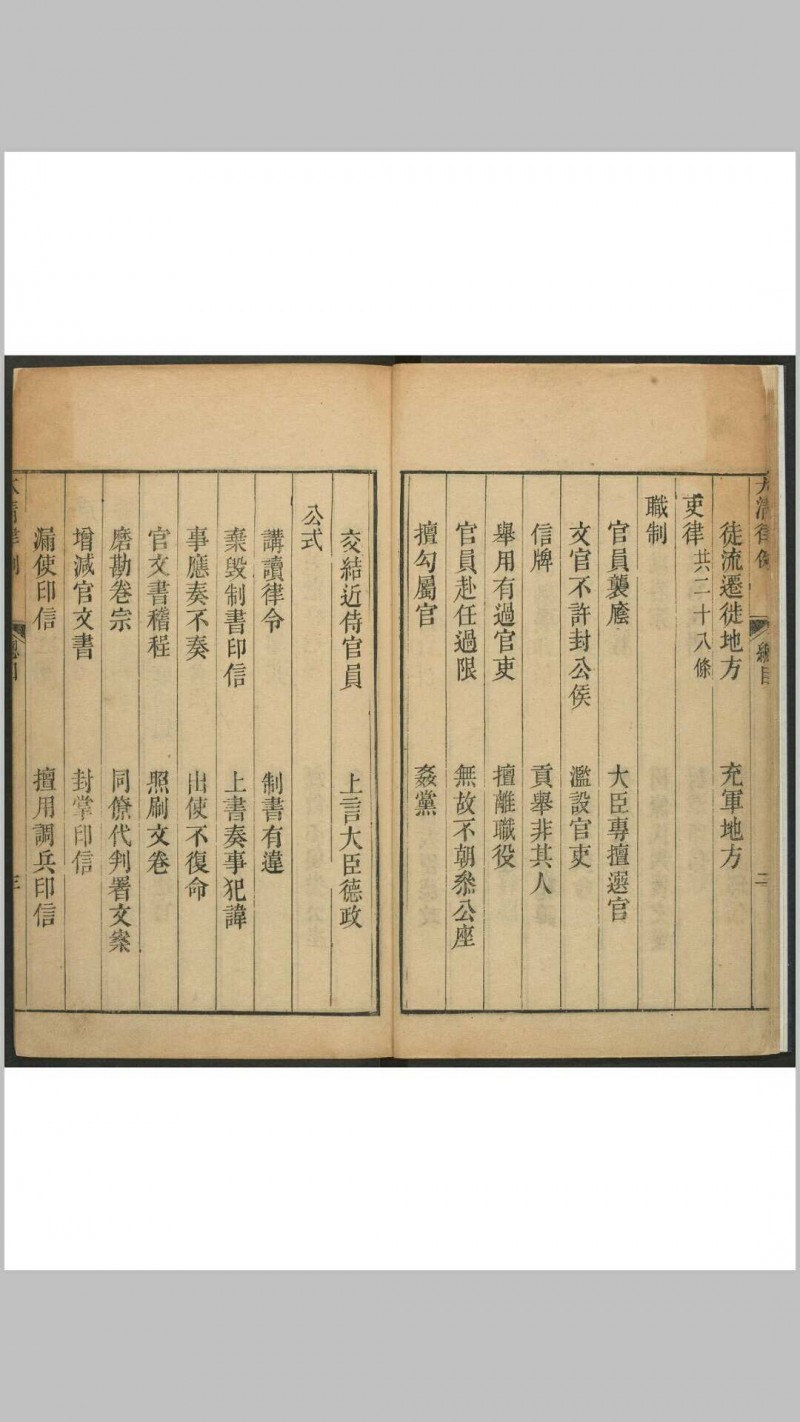 大清律例 總目 二
徒流遷徙地方 充軍地方
吏律 共二十八條
職制
官員襲廕 大臣專擅選官
文官不許封公侯 濫設官吏
信牌 貢舉非其人
舉用有過官吏 擅離職役
官員赴任過限 無故不朝叅公座
擅勾屬官 姦黨
交結近侍官員 上言大臣德政
公式
講讀律令 制書有違
棄毀制書印信 上書奏事犯諱
事應奏不奏 出使不復命
官文書稽程 照刷文卷
磨勘卷宗 同僚代判署文案
增減官文書 封掌印信
漏使印信 擅用調兵印信